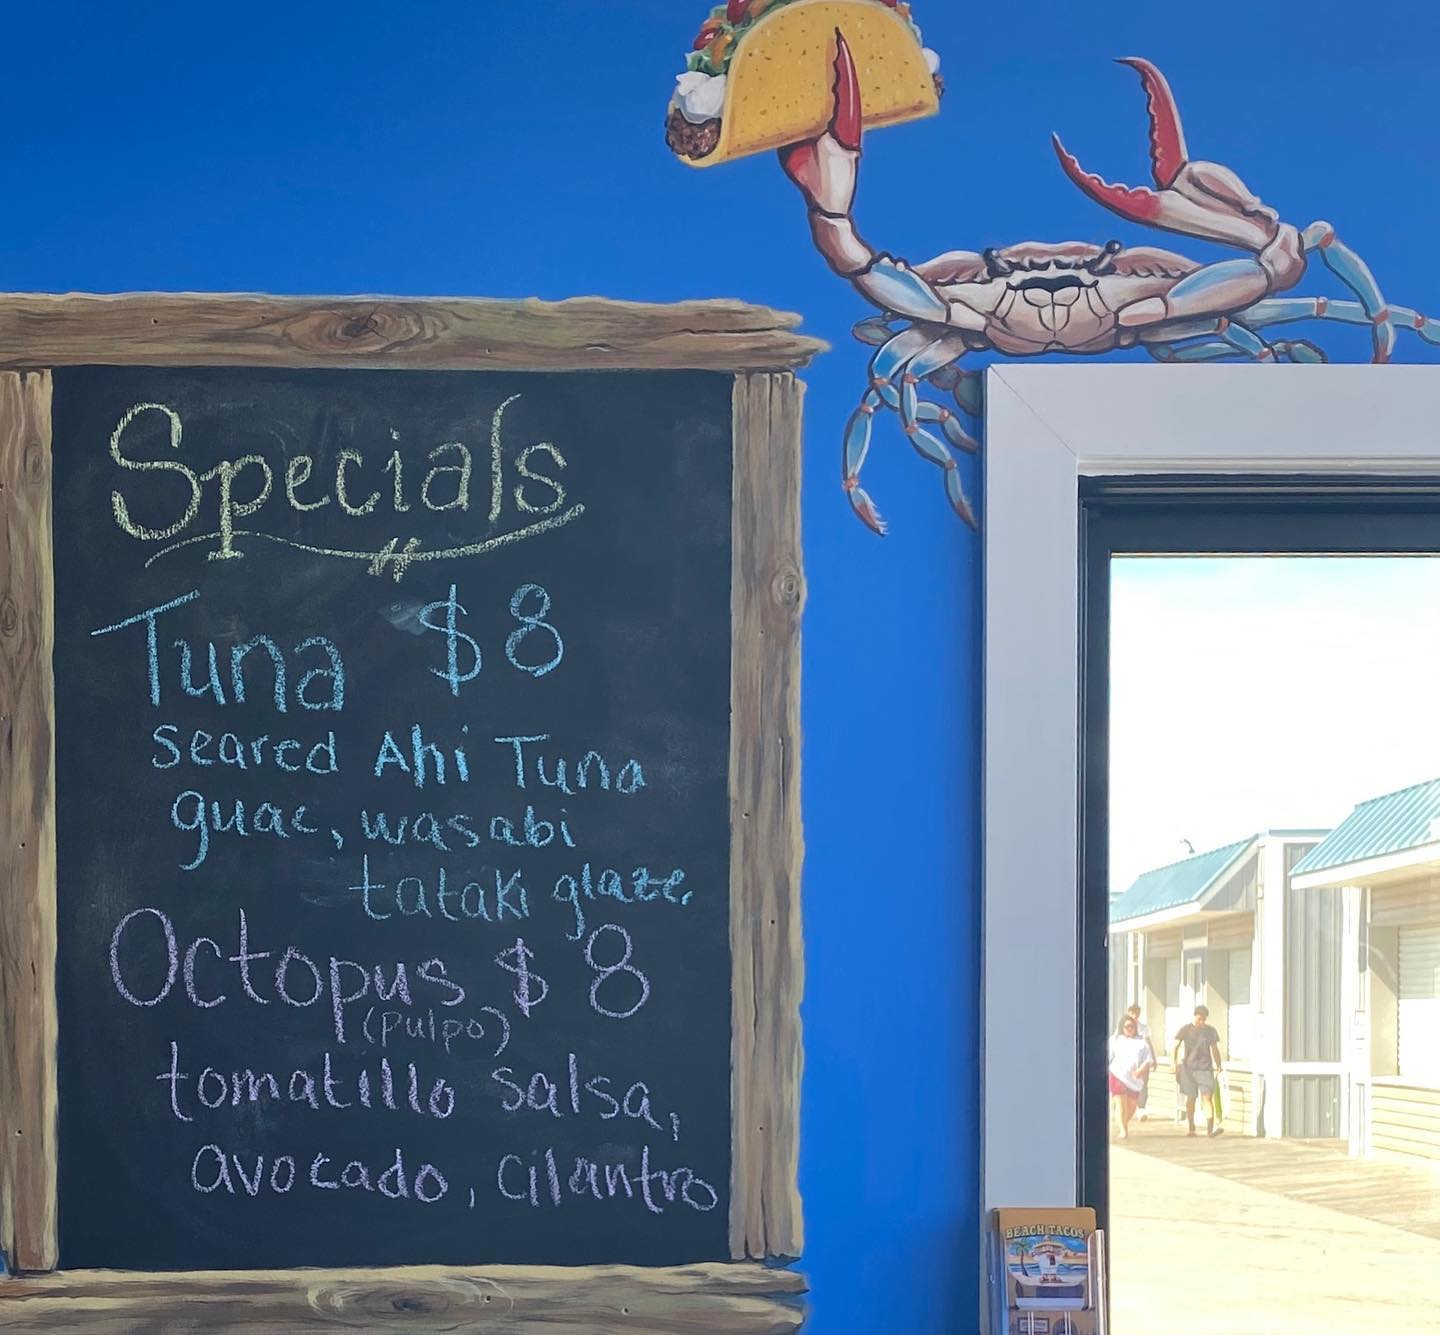 Specials
Tuna $8
seared Ahi Tuna
guac, wasabi
tataki glaze.
Octopus $8
(pulpo)
tomatillo salsa,
avocado, cilantro
BEACH TACOS